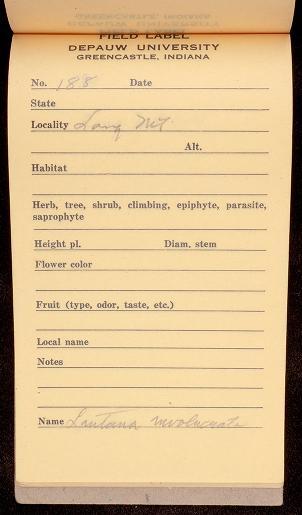 FIELD LABEL
DEPAUW UNIVERSITY
GREENCASTLE, INDIANA
No. 188 Date
State
Locality Long Mt.
Alt.
Habitat
Herb, tree, shrub, climbing, epiphyte, parasite,
saprophyte
Height pl. Diam. stem
Flower color
Fruit (type, odor, taste, etc.)
Local name
Notes
Name Lantana involucrata